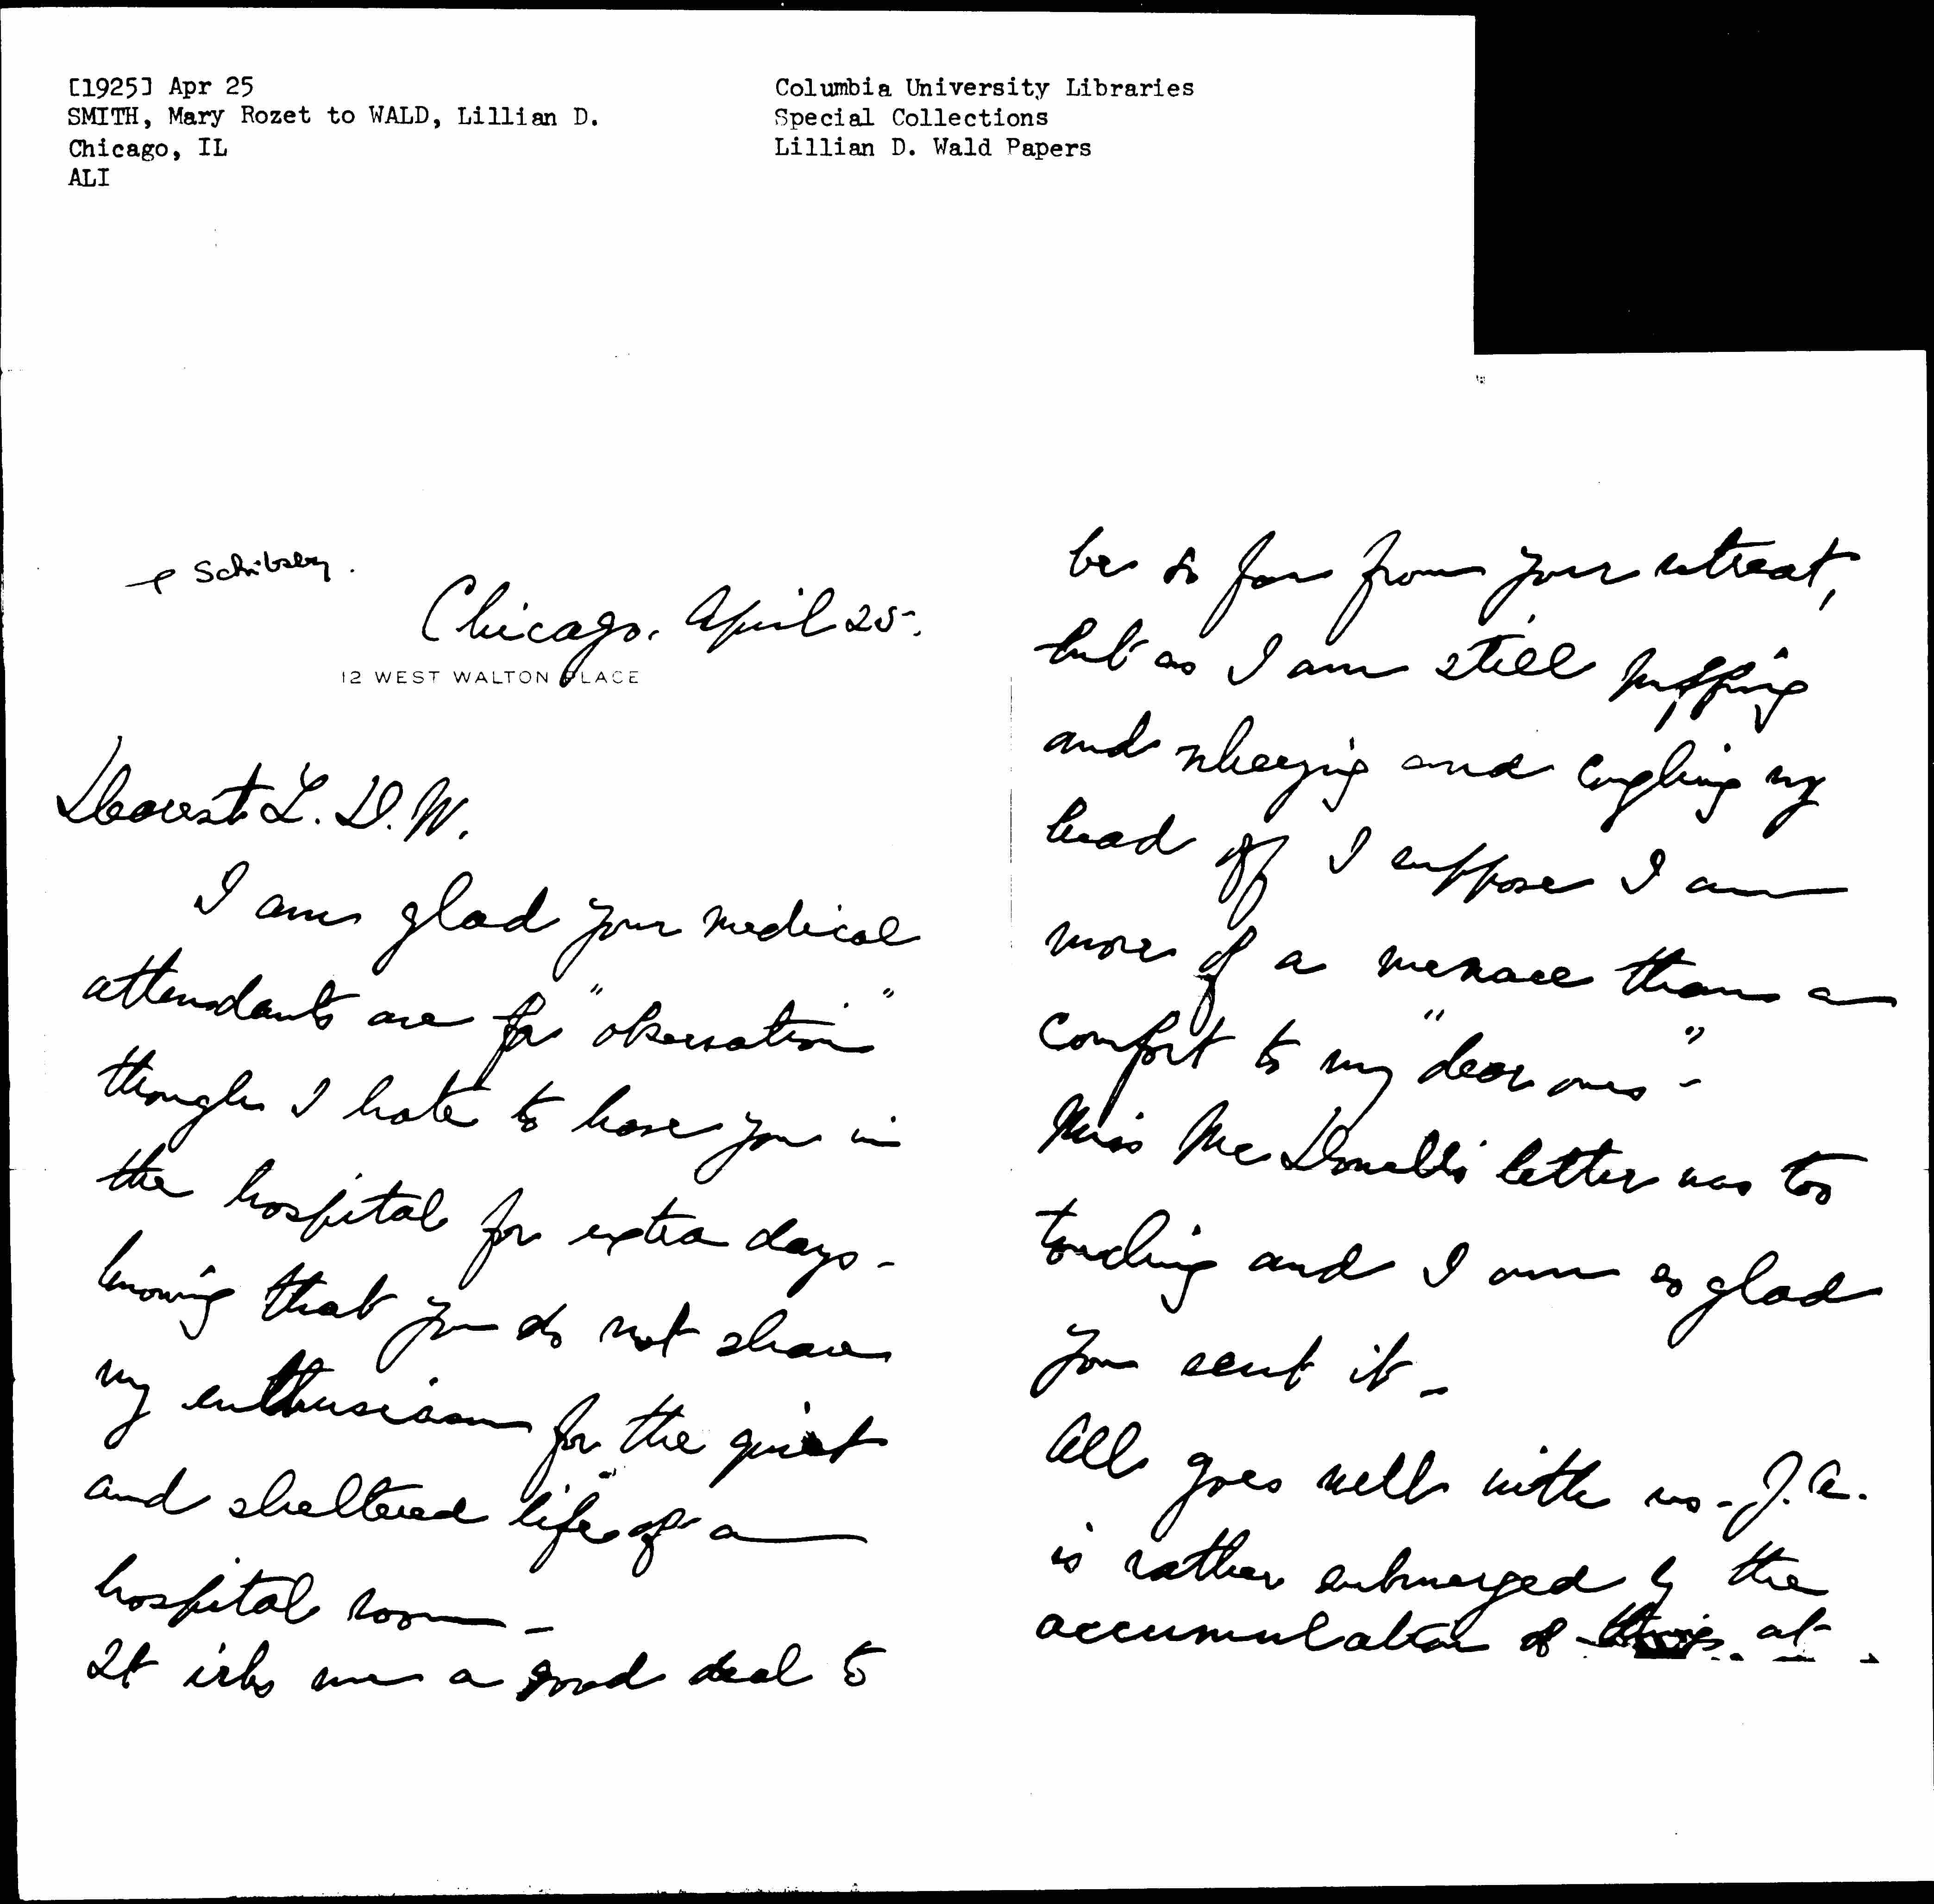 [1925] Apr 25
SMITH, Mary Rozet to WALD, Lillian D.
Chicago, IL
ALI
Columbia University Libraries
Special Collections
Lillian D. Wald Papers
Chicago. April 25.
12 WEST WALTON PLACE
Dearest L. D. W.
I am glad your medical
attendants are for "observation"
though I hate to have you in
the hospital for extra days -
knowing that you do not share
my enthusiasm for the quiet
and sheltered life of a
hospital room -
It irks me a good deal to
be so far from your retreat,
but as I am still puffing
and wheezing and coughing my
head off I suppose I am
more of a menace than a
comfort to my "dear ones" -
Miss McDonell's letter was too
touching and I am so glad
you sent it -
All goes well with us - J. A.
is rather submerged by the
accumulation of things at